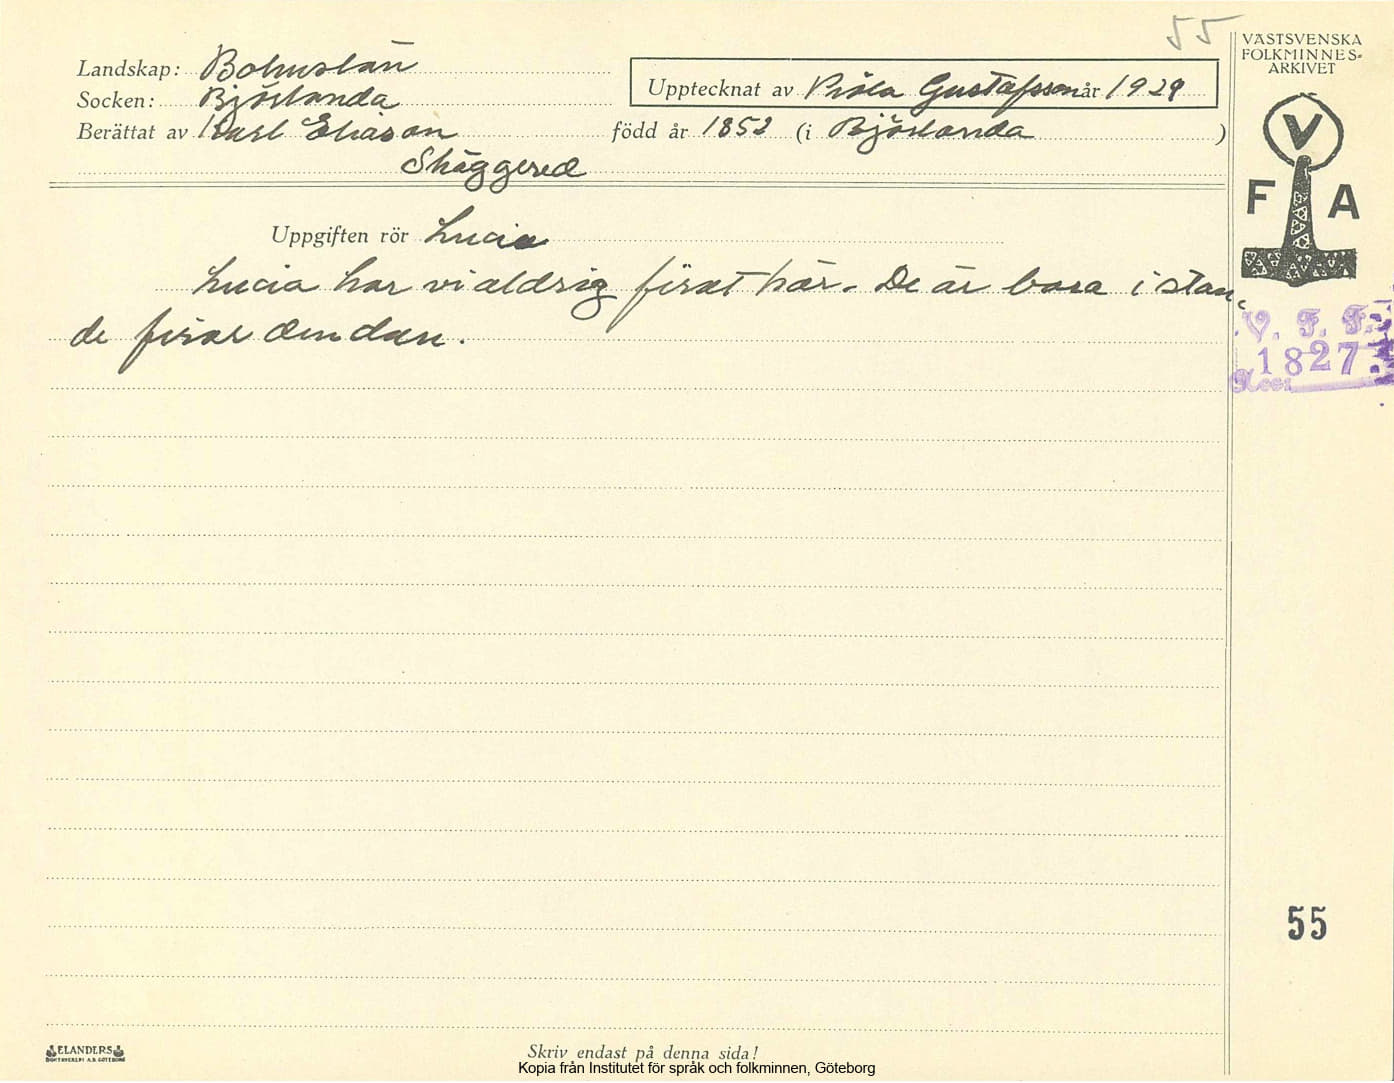 55
VÄSTSVENSKA
FOLKMINNES-
ARKIVET
Landskap: Bohuslän
Socken: Björlanda
Upptecknat av Viola Gustafsson år 1929
Berättat av Karl Eliason född år 1852 (i Björlanda )
Skäggered
V
F A
Uppgiften rör Lucia
Lucia har vi aldrig firat här. De är bara i stan
de firar den dan.
V. F. F:s
1827
Acc:
55
ELANDERS
BOKTRYCKERI A.B. GÖTEBORG
Skriv endast på denna sida!
Kopia från Institutet för språk och folkminnen, Göteborg